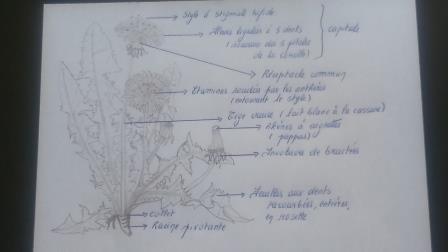 Style à stigmate bifide
Fleurs ligulées à 5 dents
(soudure des 5 pétales
de la corolle)
capitule
Réceptacle commun
Etamines soudées par les anthères
(entourant le style)
Tige creuse (lait blanc à la cassure)
Akènes à aigrettes
(pappus)
Involucre de bractées
Feuilles aux dents
recourbées, entières,
en rosette
Collet
Racine pivotante